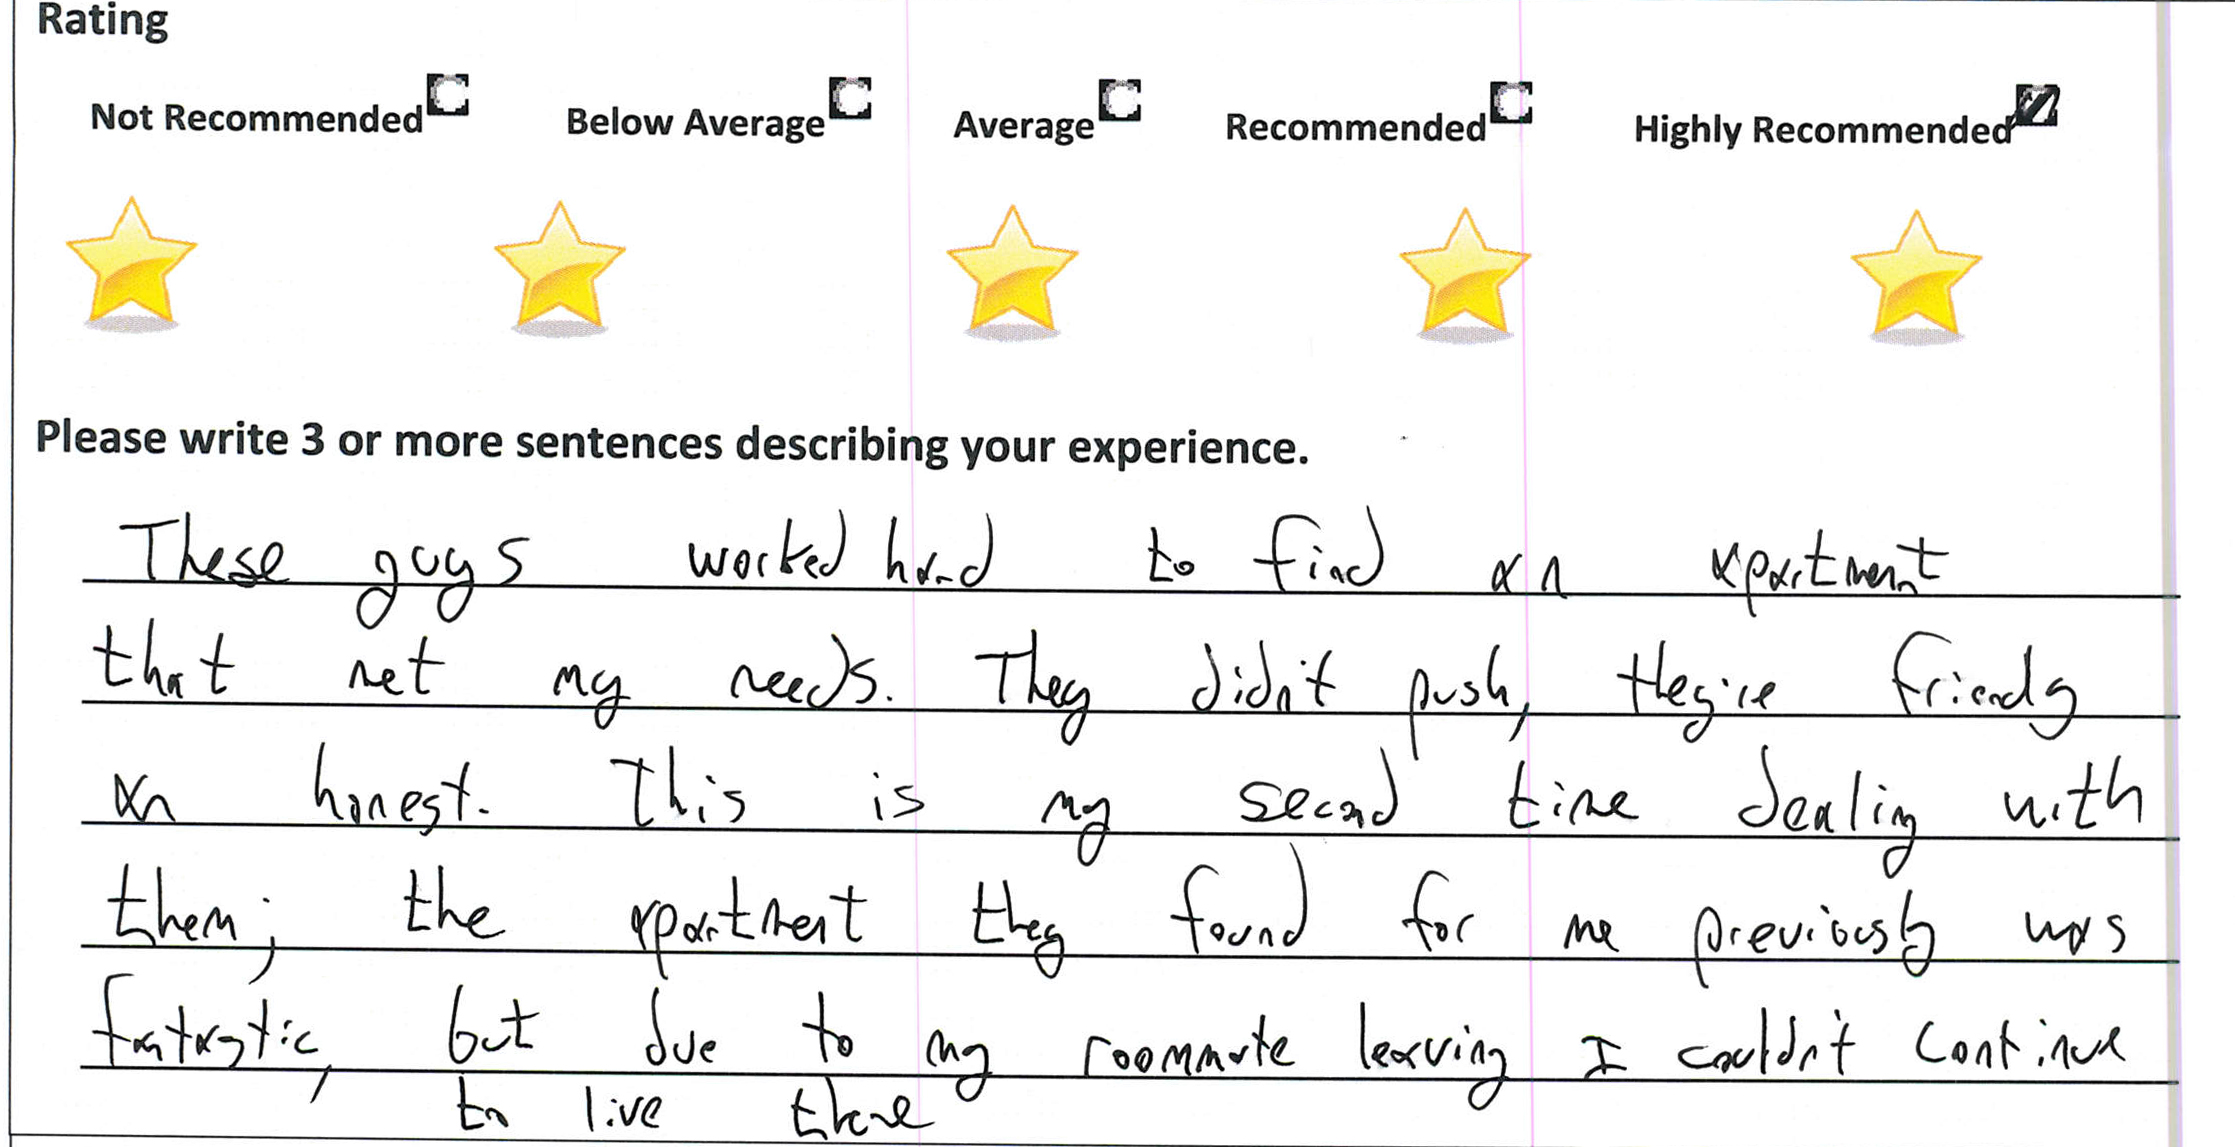 Rating
Not Recommended Below Average Average Recommended Highly Recommended
Please write 3 or more sentences describing your experience.
These guys worked hard to find an apartment
that met my needs. They didn't push, they're friendly
an honest. This is my second time dealing with
them; the apartment they found for me previously was
fantastic, but due to my roommate leaving I couldn't continue
to live there